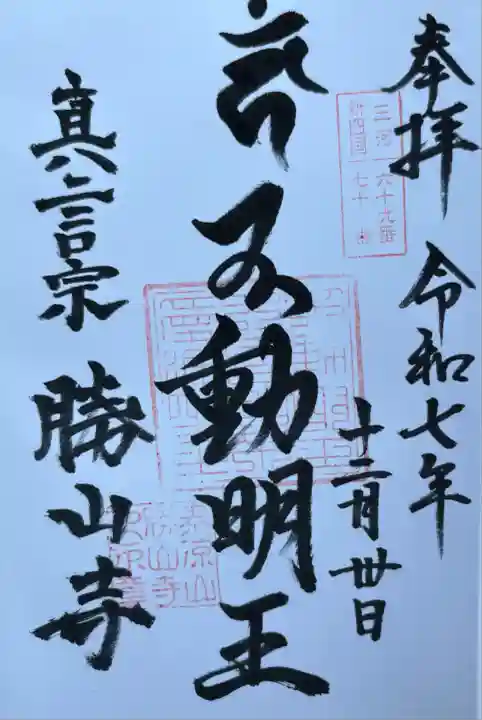 奉拝 令和七年
十二月卅日
三河
六十九番
新四国
七十
不動明王
真言宗 勝山寺